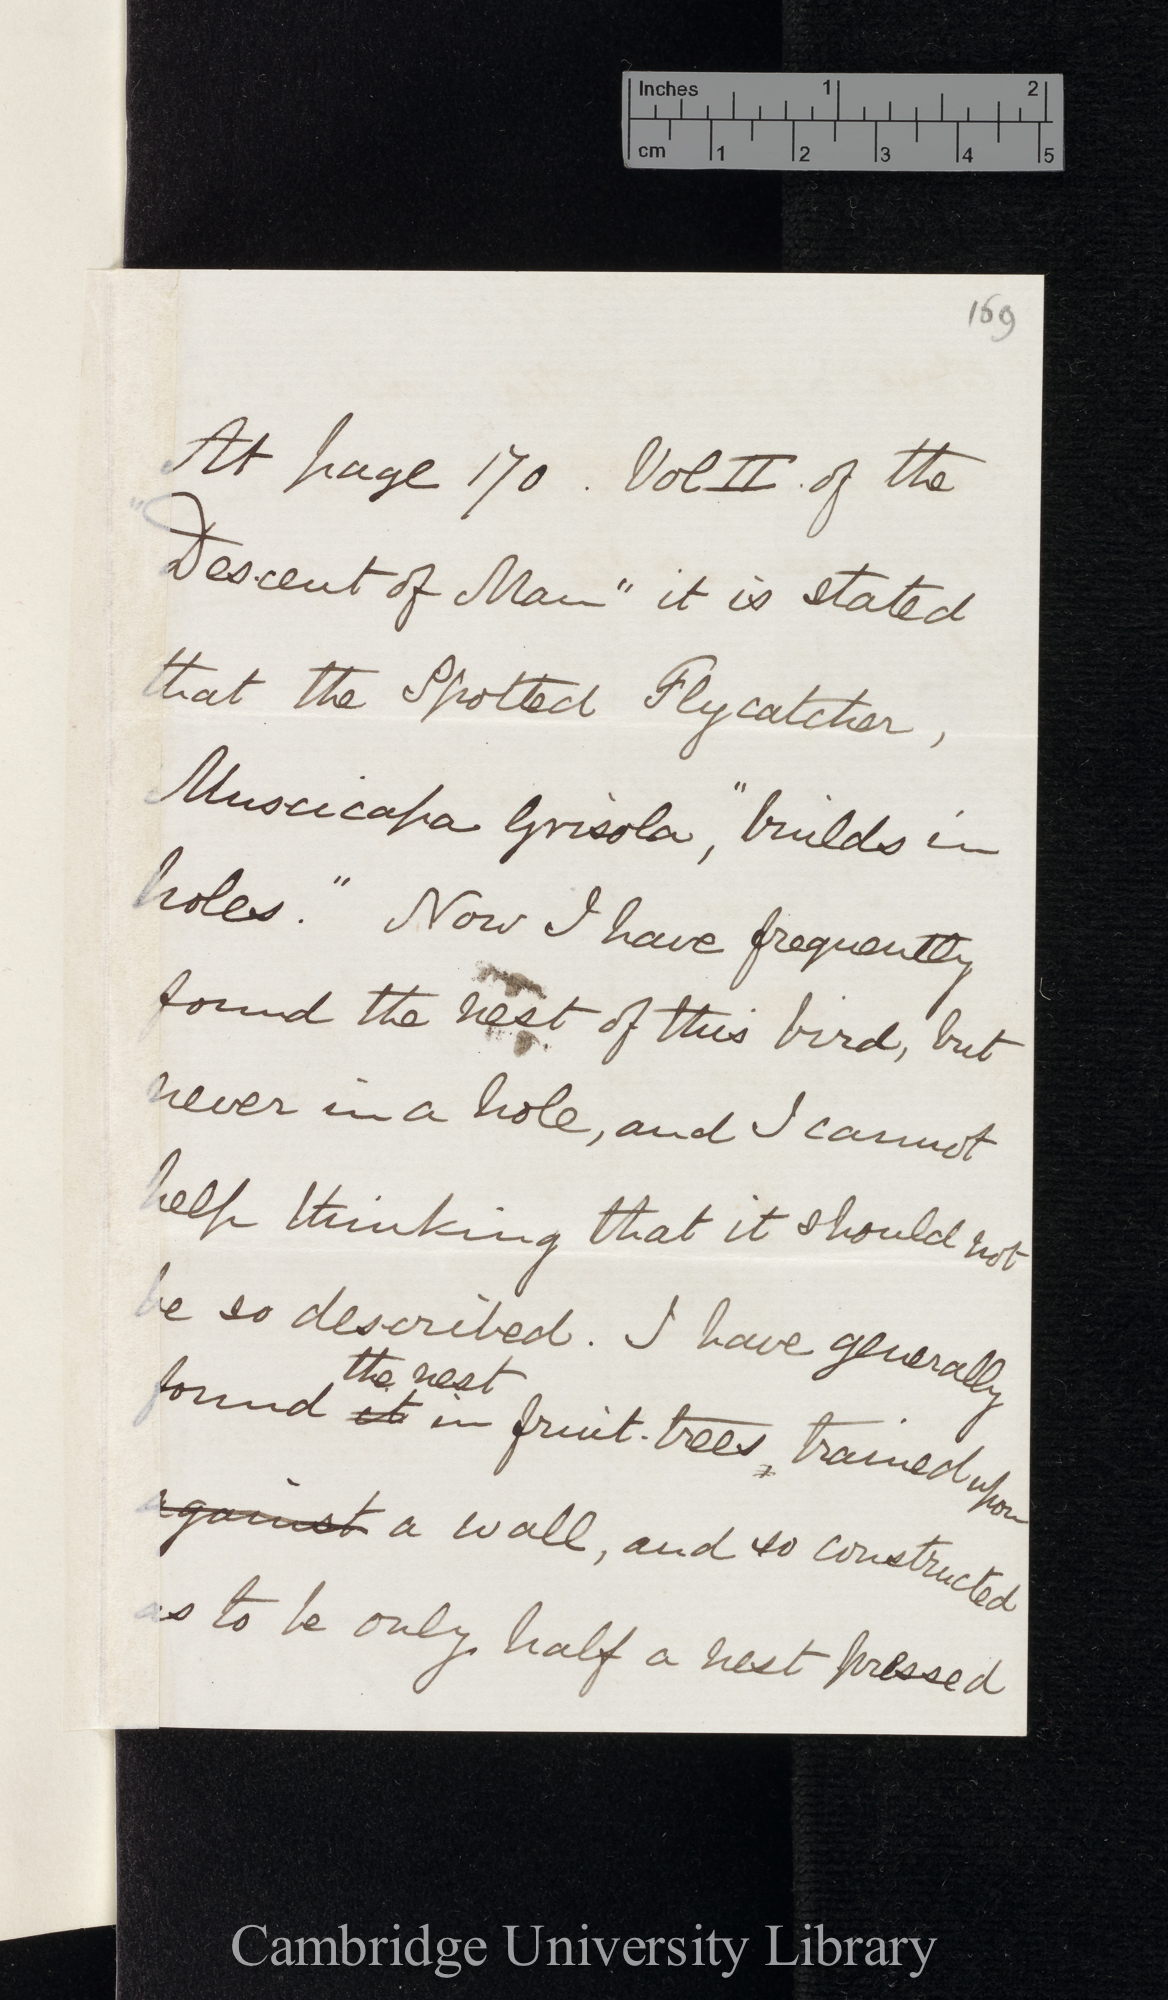 Inches 1 2
cm 1 2 3 4 5
169
At page 170. Vol II. of the
"Descent of Man" it is stated
that the Spotted Flycatcher,
Muscicapa Grisola, "builds in
holes." Now I have frequently
found the nest of this bird, but
never in a hole, and I cannot
help thinking that it should not
be so described. I have generally
the nest
found it in fruit-trees, trained upon
against a wall, and so constructed
as to be only half a nest pressed
Cambridge University Library